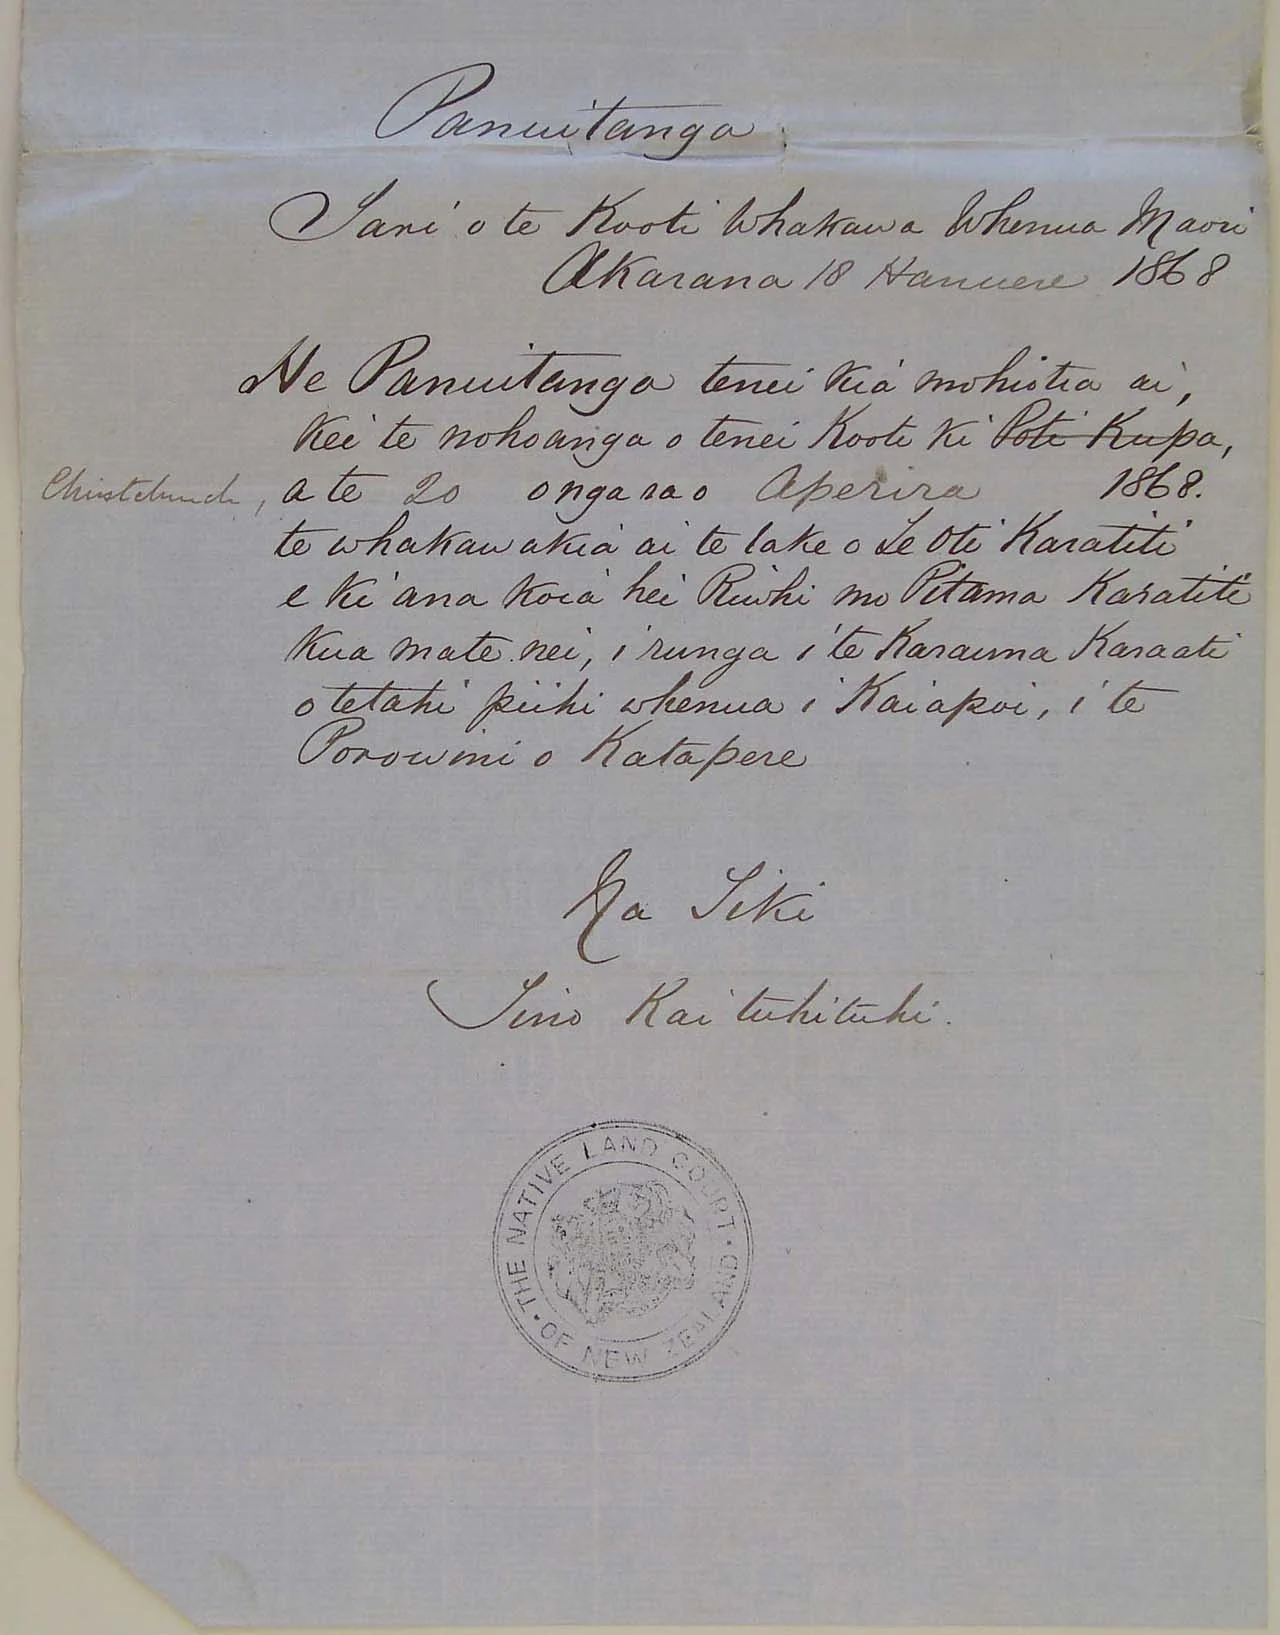 Panuitanga
Tari o te Kooti Whakawa Whenua Maori
Akarana 18 Hanuere 1868
He Panuitanga tenei kia mohiotia ai,
kei te nohoanga o tenei Kooti ki Poti Kupa,
Christchurch, a te 20 o nga ra o Aperira 1868.
te whakawakia ai te take o Te Oti Karatiti
e ki ana koia hei Riwhi mo Pitama Karatiti
kua mate nei, i runga i te Karauna Karaati
o tetahi piihi whenua i Kaiapoi, i te
Porowini o Katapere
Na Tiki
Tino Kai tuhituhi.
THE NATIVE LAND COURT
OF NEW ZEALAND